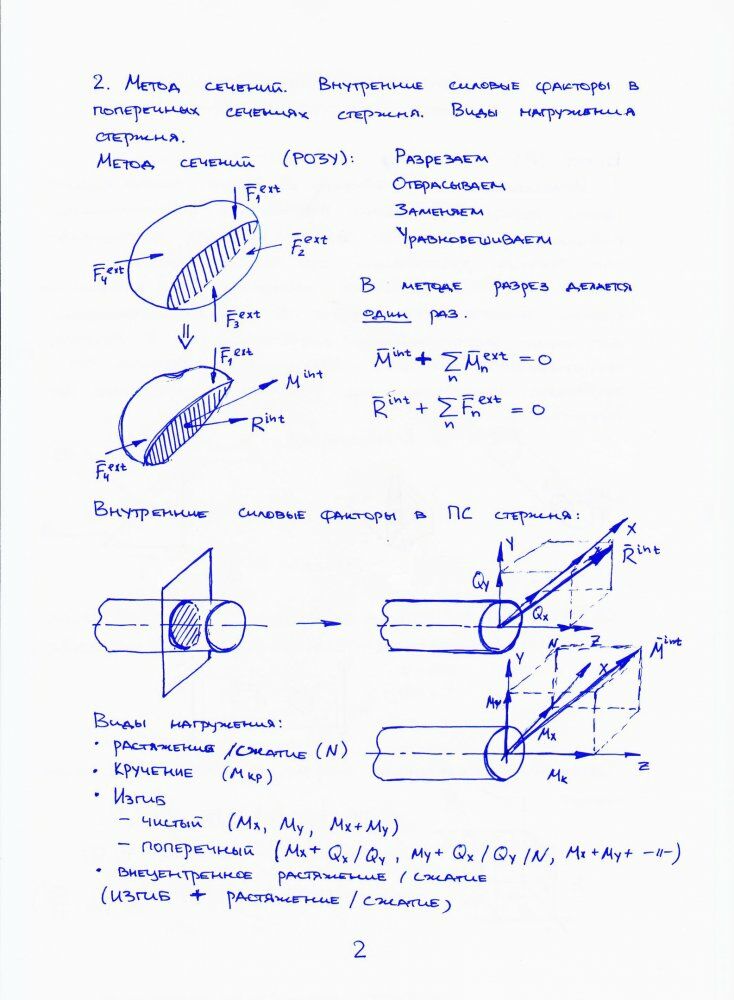 2. Метод сечений. Внутренние силовые факторы в
поперечных сечениях стержня. Виды нагружения
стержня.
Метод сечений (РОЗУ):
Разрезаем
Отбрасываем
Заменяем
Уравновешиваем
F̄₁ᵉˣᵗ
F̄₂ᵉˣᵗ
F̄₄ᵉˣᵗ
F̄₃ᵉˣᵗ
В методе разрез делается
один раз.
F̄₁ᵉˣᵗ
M̄ⁱⁿᵗ
R̄ⁱⁿᵗ
F̄₄ᵉˣᵗ
M̄ⁱⁿᵗ + ∑ₙ M̄ₙᵉˣᵗ = 0
R̄ⁱⁿᵗ + ∑ₙ F̄ₙᵉˣᵗ = 0
Внутренние силовые факторы в ПС стержня:
Y
X
R̄ⁱⁿᵗ
Qy
Qx
N
Z
Y
X
M̄ⁱⁿᵗ
My
Mx
Mк
Z
Виды нагружения:
• растяжение/сжатие (N)
• кручение (Mкр)
• Изгиб
– чистый (Mx, My, Mx+My)
– поперечный (Mx+ Qx/Qy, My+ Qx/Qy/N, Mx+My+ –||–)
• внецентренное растяжение/сжатие
(изгиб + растяжение/сжатие)
2